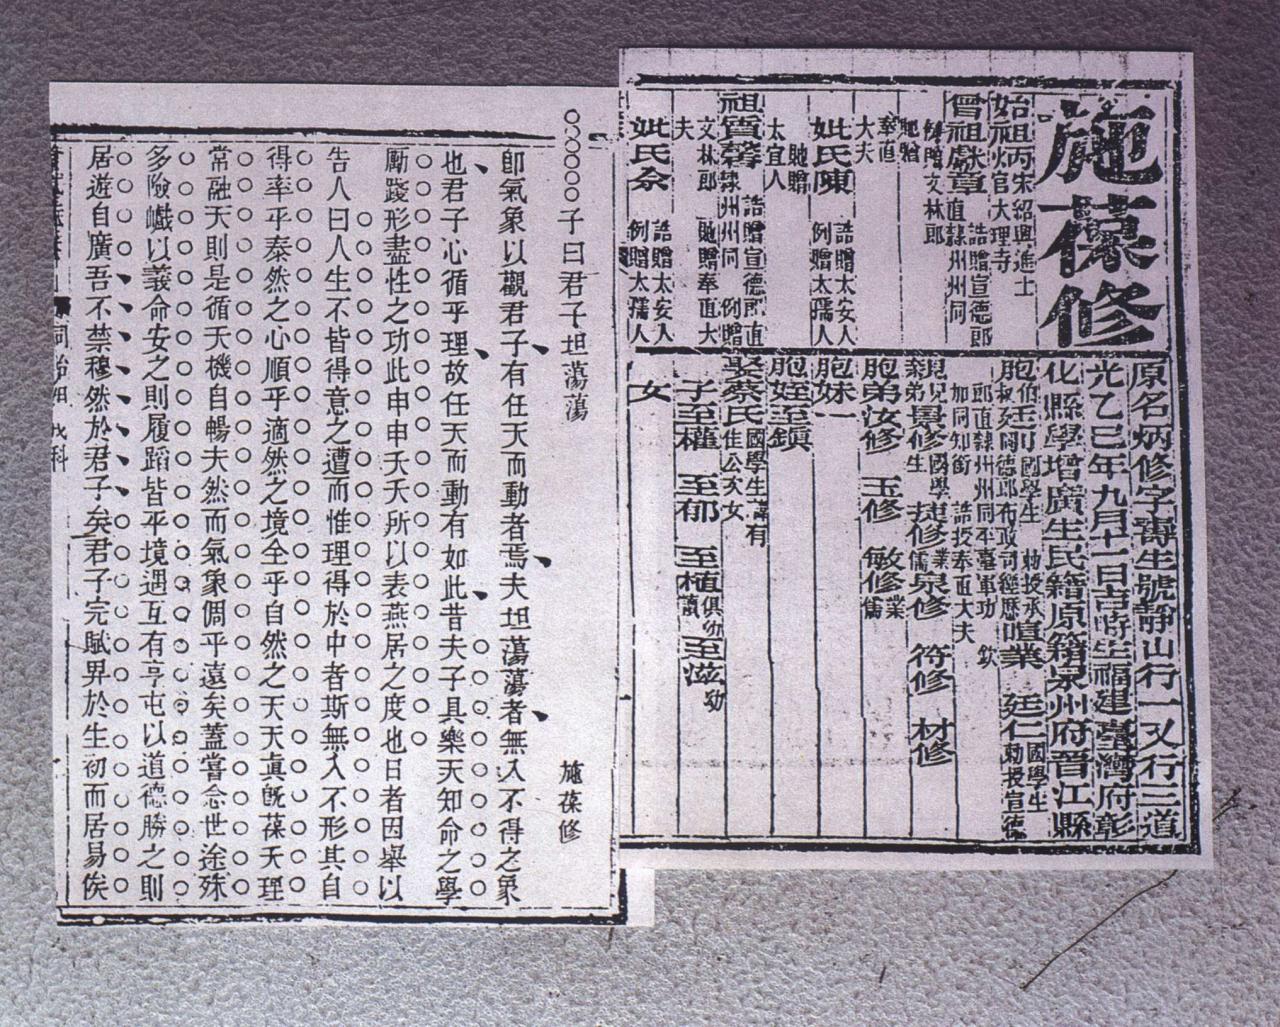 施葆修
始祖丙宋紹興進士
炌官大理寺
曾祖獻章誥贈宣德郎
直隸州州同
例贈文林郎
貤贈
奉直
大夫
妣氏陳誥贈太安人
例贈太孺人
貤贈
太宜人
祖質馨誥贈宣德郎直
隸州州同例贈
文林郎貤贈奉直大
夫
妣氏余誥贈太安人
例贈太孺人
原名炳修字壽生號靜山行一又行三道
光乙巳年九月十一日吉時生福建臺灣府彰
化縣學增廣生民籍原籍泉州府晉江縣
胞伯
叔
國學生
勅授承
德郎布政司經歷
喧業
廷仁
國學生
勅授宣德
郎直隸州州同平臺軍功
欽
加同知銜
誥授奉直大夫
親兄
弟
景修國學
生
捷修業
儒
泉修
符修
材修
胞弟汝修
玉修
敏修業
儒
胞妹一
胞姪至鎮
娶蔡氏國學生諱有
佳公次女
子至權
至郁
至植俱幼
讀
至滋幼
女
子曰君子坦蕩蕩
施葆修
卽氣象以觀君子有任天而動者焉夫坦蕩蕩者無入不得之象
也君子心循乎理故任天而動有如此昔夫子具樂天知命之學
勵踐形盡性之功此申申夭夭所以表燕居之度也日者因舉以
告人曰人生不皆得意之遭而惟理得於中者斯無入不形其自
得率乎泰然之心順乎適然之境全乎自然之天天眞旣葆天理
常融天則是循天機自暢夫然而氣象倜乎遠矣蓋嘗念世途殊
多險巇以義命安之則履蹈皆平境遇互有亨屯以道德勝之則
居遊自廣吾不禁穆然於君子矣君子完賦畀於生初而居易俟